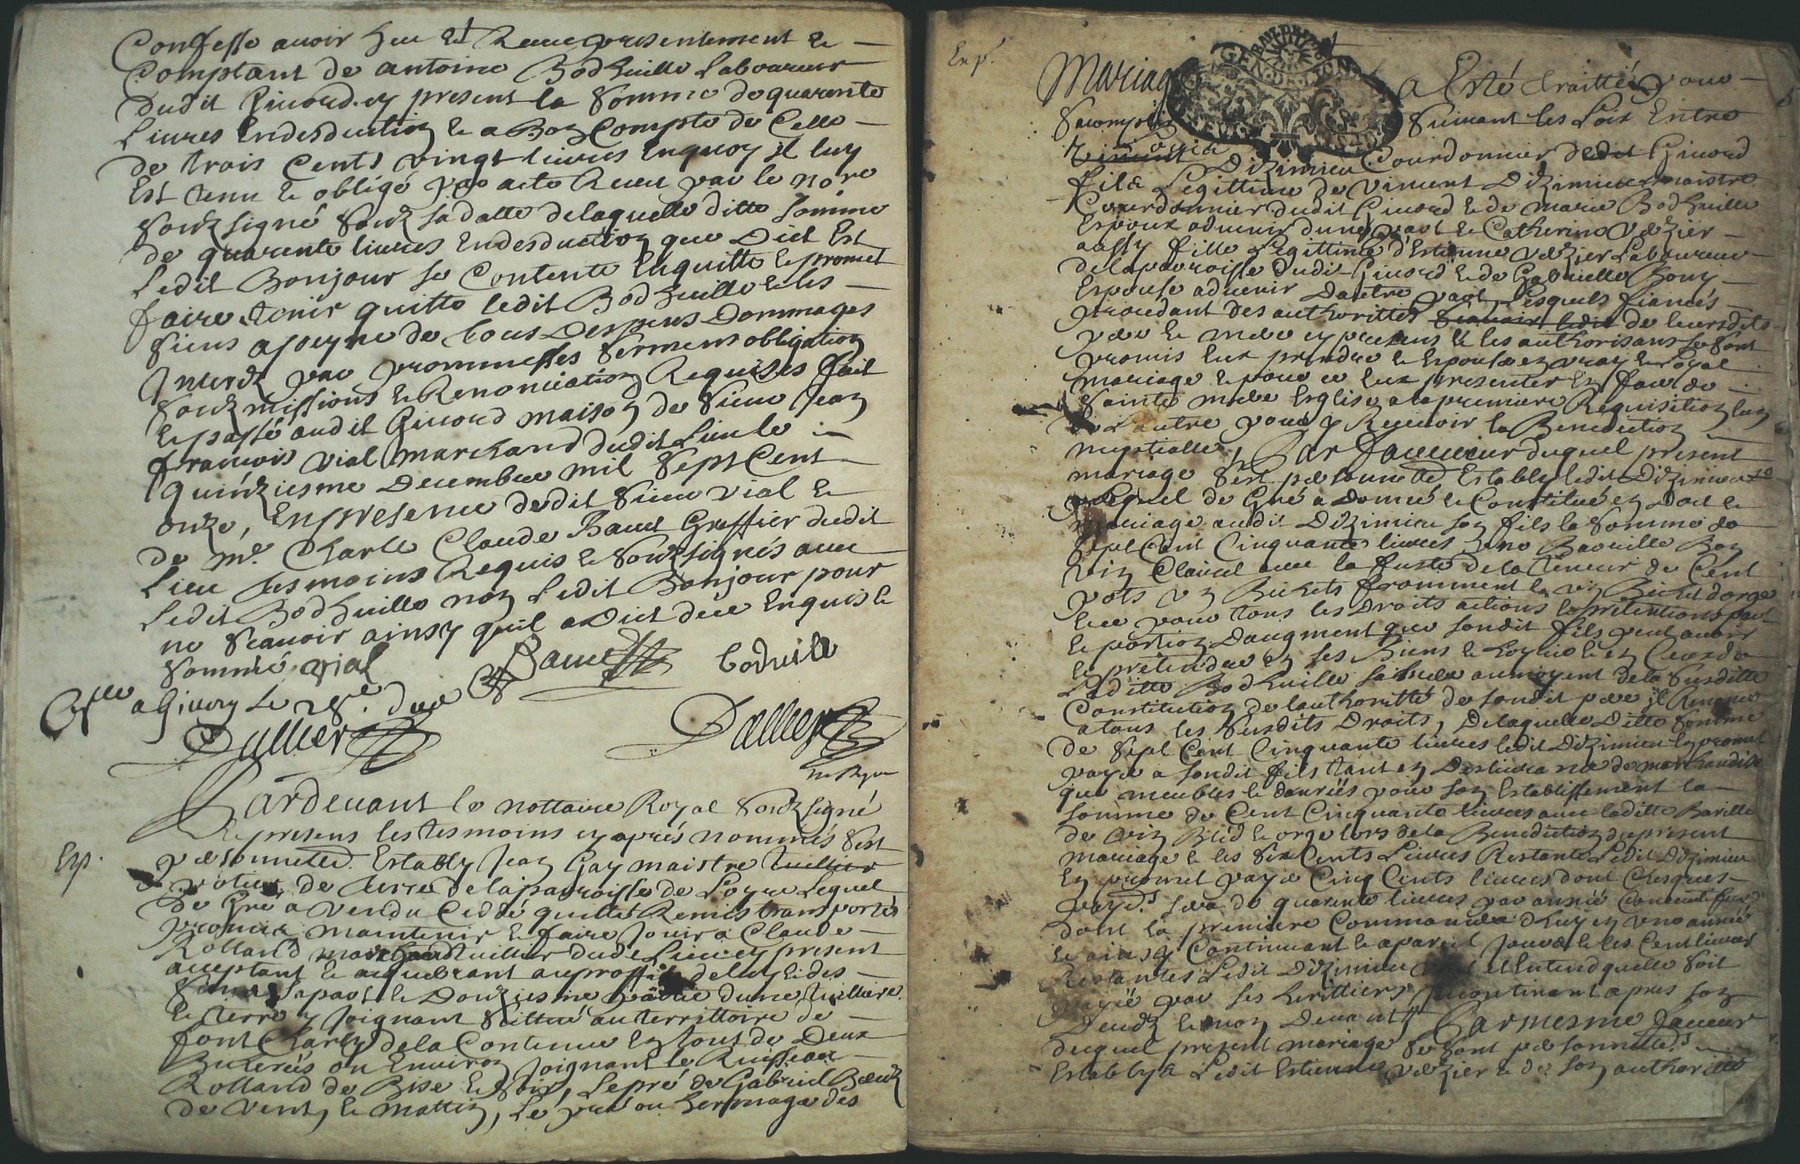 Confesse avoir heu et Receu presentement et
Comptant de antoine Bodhuille Laboureur
dudit Givord cy present la somme de quarente
Livres Endesduction et a Bon Compte de Celle
de trois Cents vingt livres Enquoy il luy
Est tenu et obligé par acte Receu par le no.re
soubz signé soubz sa datte delaquelle ditte somme
de quarente livres Endesduction que Dict Est
Ledit Bonjour se Contente Enquitte et promet
faire tenir quitte ledit Bodhuille et les
siens apeyne de tous Despens Dommages
Interetz par prommesses sermens obligation
soubzmissions et Renonciation Requises fait
et passé audit Givord maison de sieur Jean
francois vial marchand dudit Lieu le
quinziesme Decembre mil sept Cent
onze, En presence dudit sieur vial et
de m.e Charle Claude Baud Greffier dudit
Lieu tesmoins Requis et soubzsignés avec
Ledit Bodhuille non Ledit Bonjour pour
ne scavoir ainsy quil a Dict de ce Enquis et
sommé vial
bodville
Cllé a Givors Le 28.e dud
Dallier
Dallier
no Royal
Pardevant le nottaire Royal soubz signé
Et presens les tesmoins cy aprés nommés s'est
Exp.
personnelle. Estably Jean Gay maistre tuillier
potier de terre de la parroisse de Loyre Lequel
De Gré a vendu Ceddé quitté Remis transportés
promis maintenir et faire Jouir a Claude
Rolland marchand tuillier dudit Lieu cy present
acceptant et acquerant au proffit de luy et des
siens la part et Douziesme partie dune tuilliere
et terre y Joignant scittué au territoire de
font Charly de la Contenue En tout de Deux
Bicherés ou Environ Joignant le Ruisseau
Rolland de Bise et soir, Le pré de Gabriel
de vent, et mattin, Le pré ou hermage des
Exp.
Mariage a Esté traitté pour
sacomplir suivant les Loix Entre
Dizimieu Courdonnier dudit Givord
fils Legittime de vincent Dizimieu maistre
Courdonnier dudit Givord et de marie Bodhuille
Espoux advenir dune part et Catherine verzier
aussy fille Legittime d'Estienne verzier Laboureur
de la parroisse dudit Givord et de Gabrielle Bony
Espouse advenir Dautre part Lesquels fiancés
procedant des authorittés de leursdits
pere et mere cy presens et les authorisans se sont
promis Eux prendre et Espouser en vray et Loyal
mariage et pour ce Eux presenter En face de
sainte mere Eglise a la premiere Requisition lun
de l'autre pour y Recevoir la Benediction
nuptialle, Par faveur duquel present
mariage s'est personnelle. Estably ledit Dizimieu
Lequel de Gré a Donné et Constitué en Dot et
mariage audit Dizimieu son fils la somme de
sept Cent Cinquante livres une Bareille Bon
vin Clairet avec la fuste de la teneur de Cent
pots six Bichets fromment et six Bichet dorge
et ce pour tous les Droits actions et pretentions part
et portion Daugment que sondit fils peut avoir
et pretendre en ses Biens et hoyrie et en Ceux de
Laditte Bodhuille sa mere au moyen de la susditte
Constitution de l'authoritté de sondit pere il Renonce
a tous les susdits Droits, De laquelle Ditte somme
de sept Cent Cinquante livres ledit Dizimieu En promet
payer a sondit fils tant en Deslivrance de marchandise
que meubles et danrées pour son Establissement la
somme de Cent Cinquante livres avec laditte Bareille
de vin Bled et orge lors de la Benediction du present
mariage et les six Cents Livres Restante Ledit Dizimieu
En promet payer Cinq Cents livres dont Chesques
sera de quarente livres par année
dont la premiere Commancera dhuy en une année
et ainsy Continuant et a pareil Jour et les Cent livres
Restantes Ledit Dizimieu Entend quelle soit
payée par ses heritiers Incontinent apres son
Decedz et non Devant Par mesme faveur
duquel present mariage se sont personnelle.
Establys Ledit Estienne verzier et de son authoritté